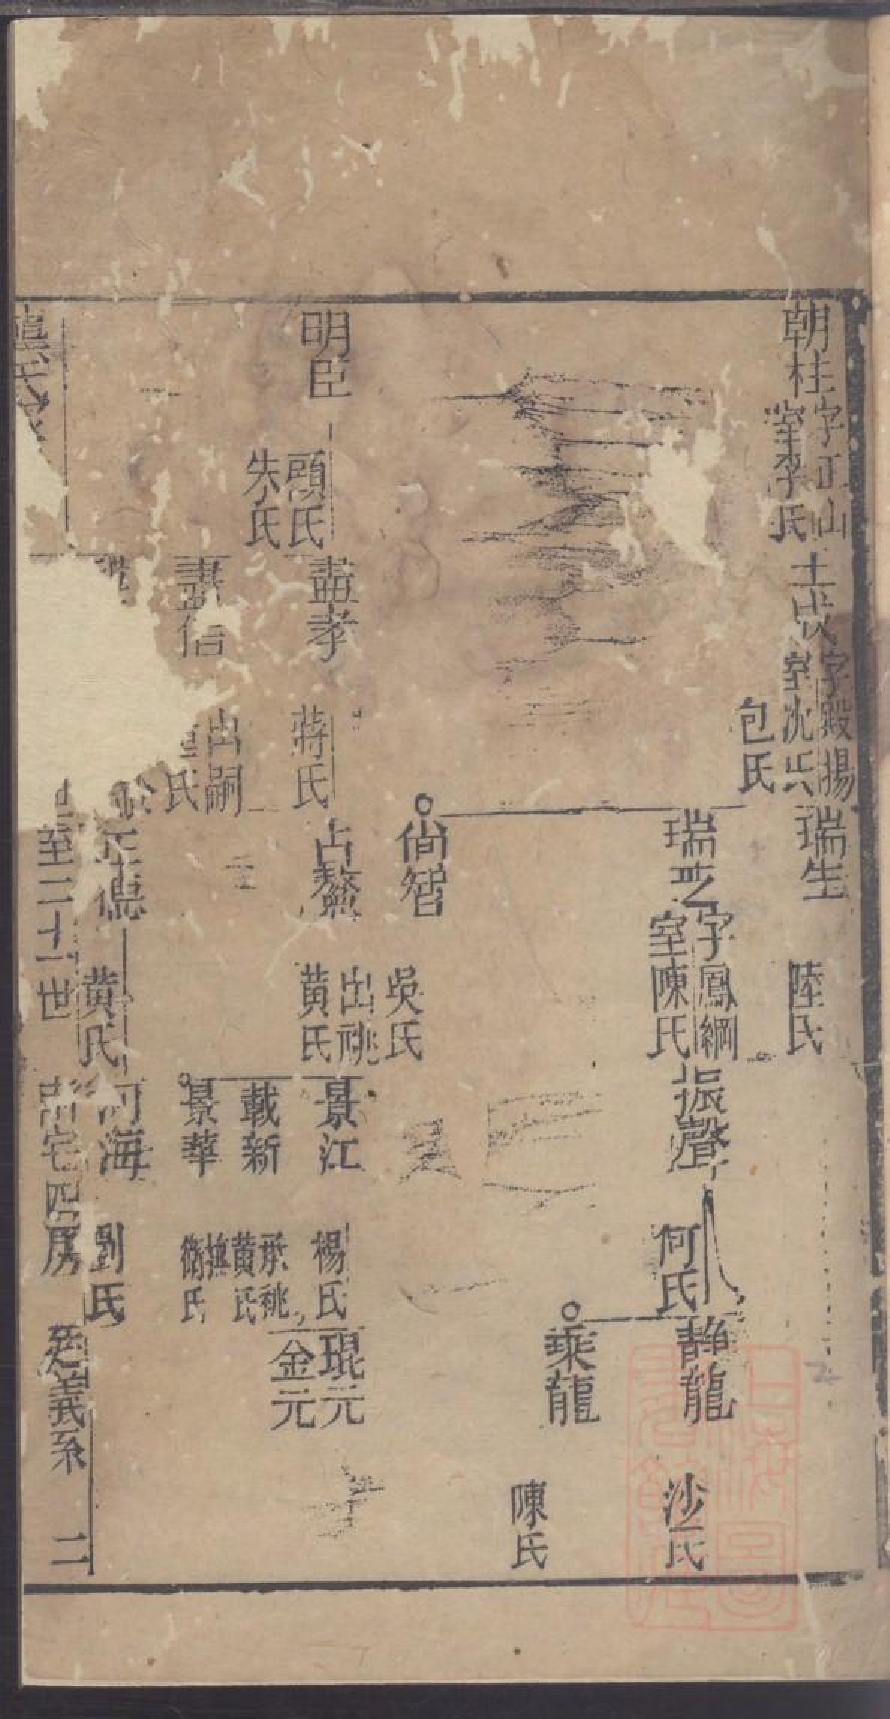 朝柱
字正山
室李氏
士成
字殿揚
室沈氏
包氏
瑞生
陸氏
瑞芝
字鳳綱
室陳氏
振聲
何氏
静龍
沙氏
乘龍
陳氏
尙智
吳氏
明臣
顧氏
朱氏
盡孝
蔣氏
占鰲
出祧
黄氏
景江
楊氏
琨元
金元
載新
承祧
黄氏
景華
衛氏
盡信
出嗣
氏
正德
黄氏
河海
劉氏
氏
至二十世
新宅四房
廷義系
二